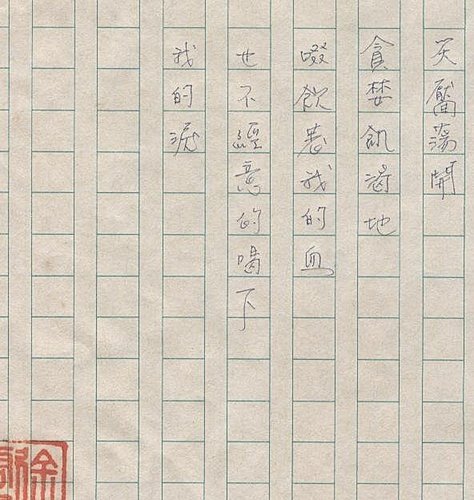 笑靨蕩開
貪婪飢渴地
啜飲著我的血
也不經意的喝下
我的淚